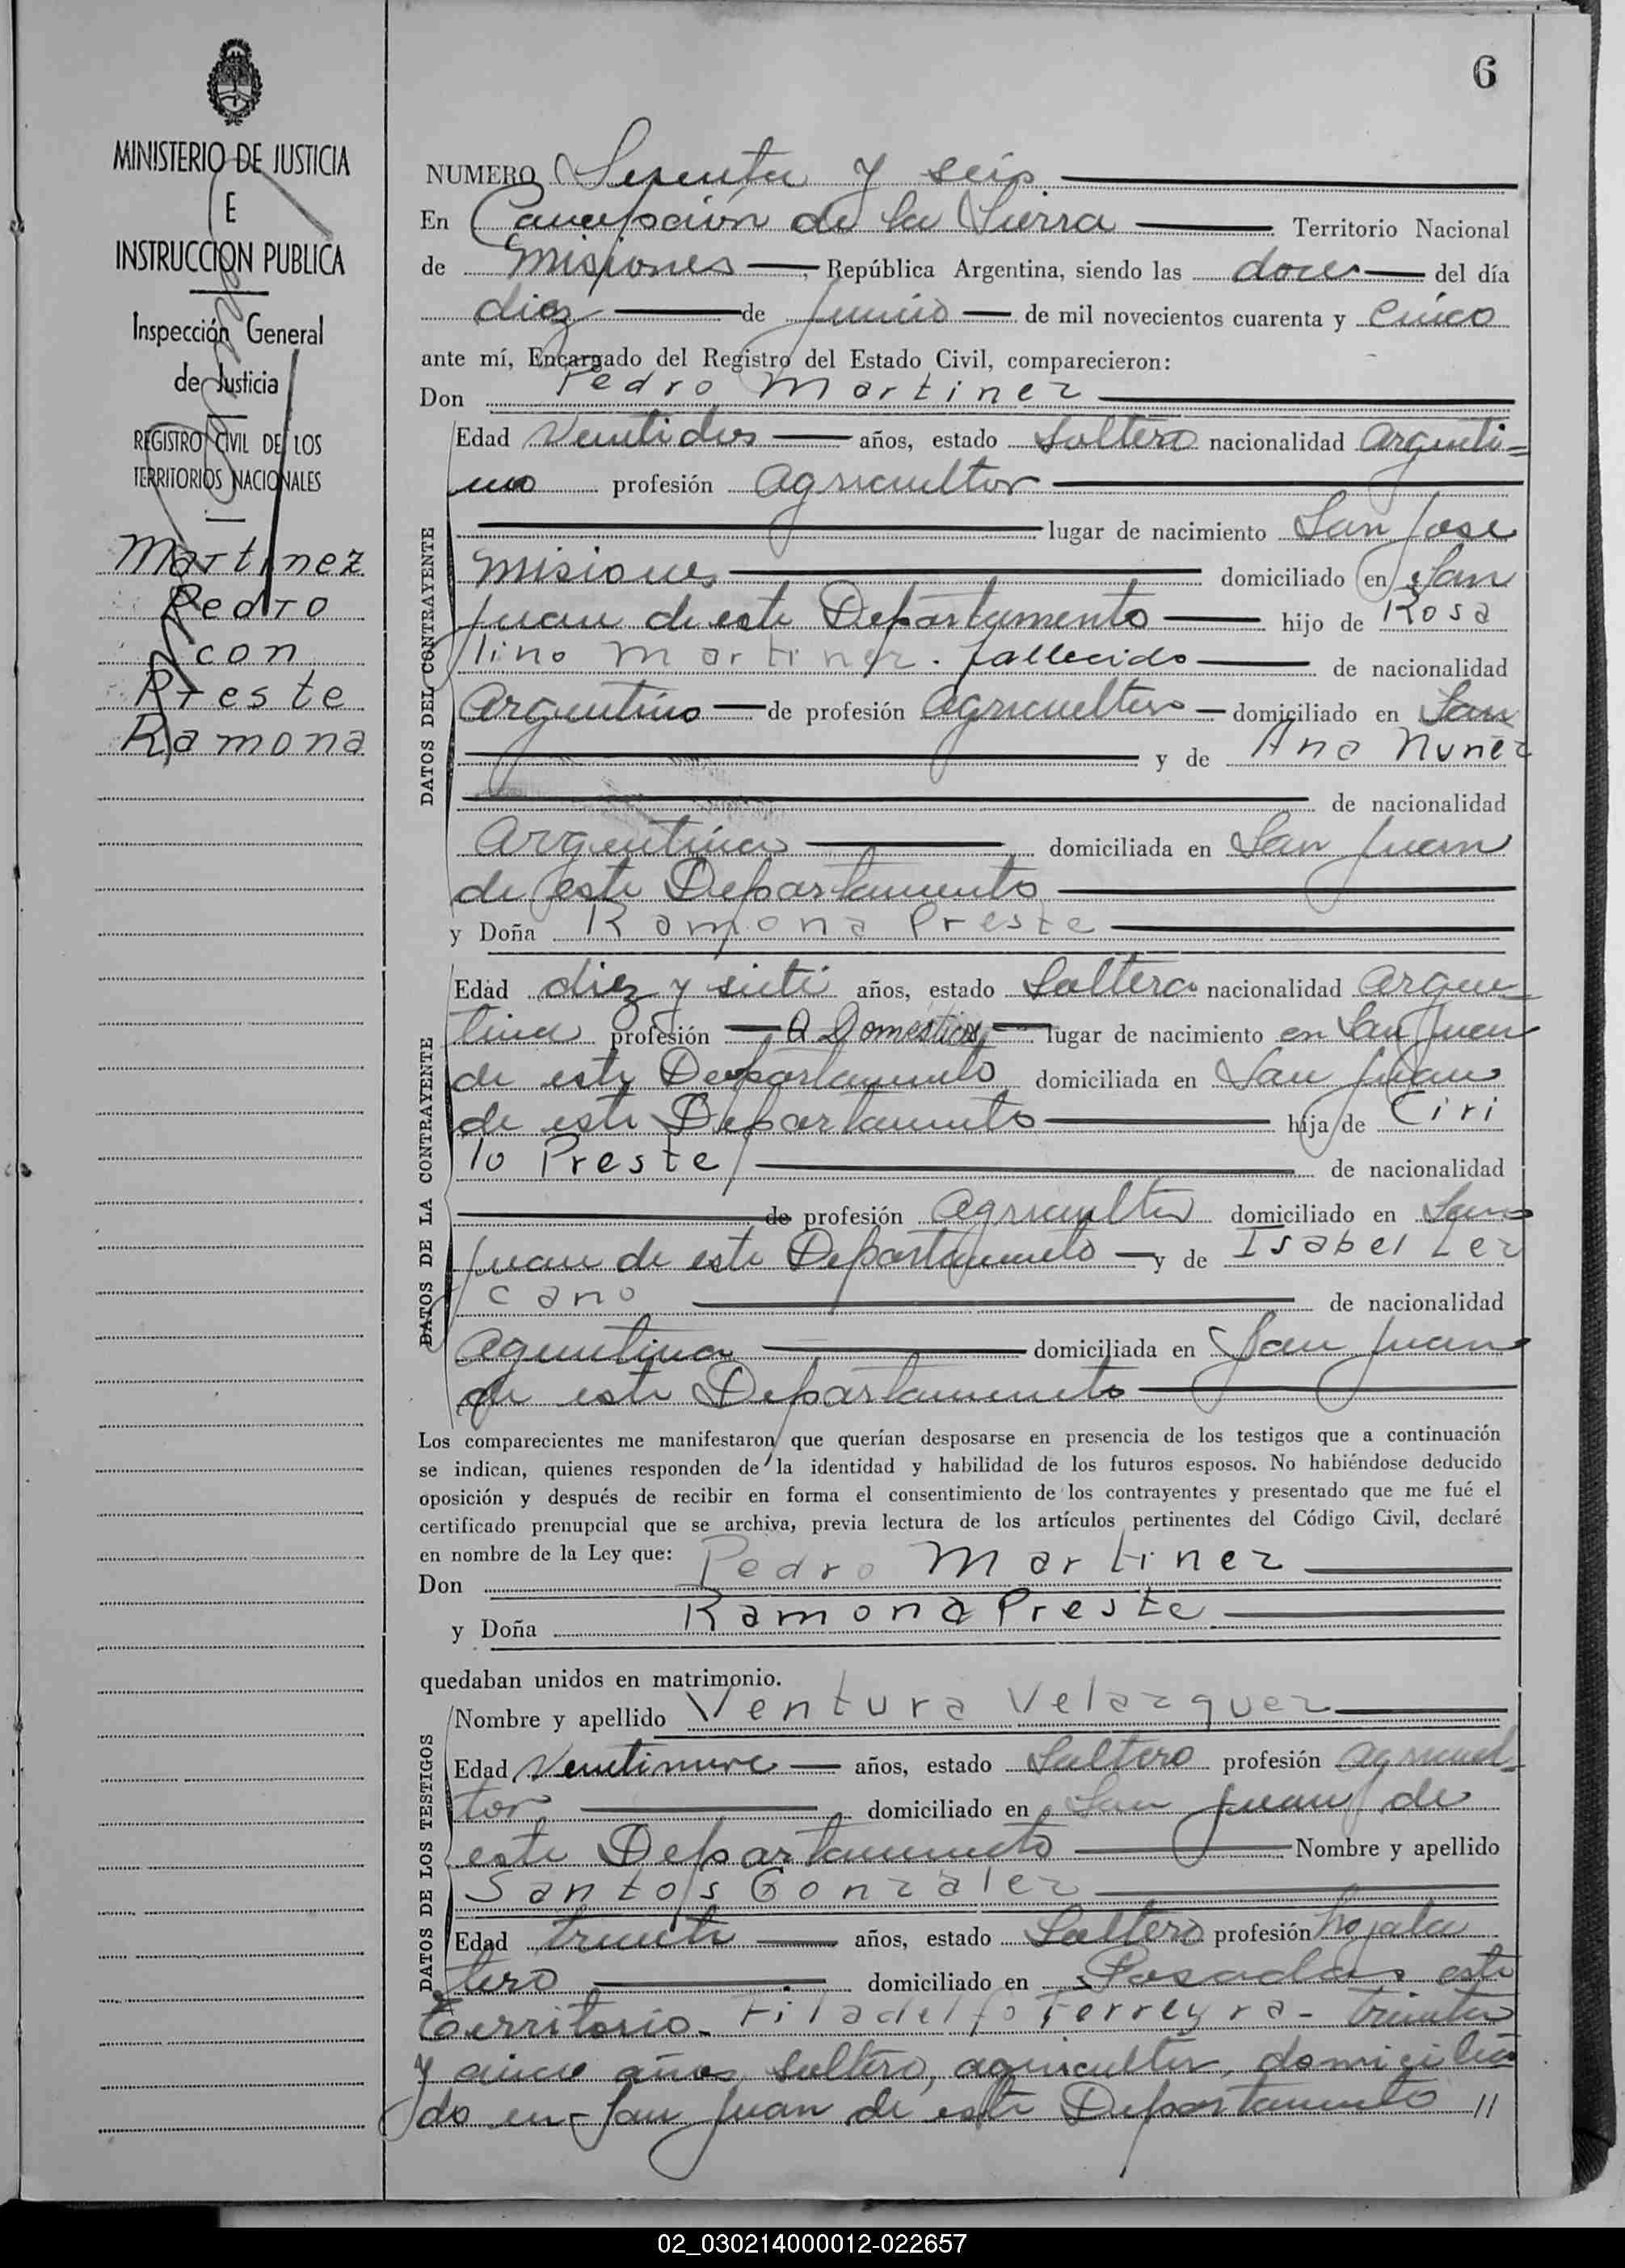 6
MINISTERIO DE JUSTICIA
E
INSTRUCCION PUBLICA
Inspección General
de Justicia
REGISTRO CIVIL DE LOS
TERRITORIOS NACIONALES
Martinez
Pedro
con
Preste
Ramona
NUMERO Sesenta y seis
En Concepción de la Sierra Territorio Nacional
de Misiones, República Argentina, siendo las doce del día
diez de Junio de mil novecientos cuarenta y cinco
ante mí, Encargado del Registro del Estado Civil, comparecieron:
Don Pedro Martinez
DATOS DEL CONTRAYENTE
Edad Veintidos años, estado Soltero nacionalidad argenti=
no profesión agricultor
lugar de nacimiento San Jose
Misiones domiciliado en San
Juan de este Departamento hijo de Rosa
lino Martinez. fallecido de nacionalidad
Argentino de profesión Agricultor domiciliado en San
y de Ana Nuñez
de nacionalidad
Argentina domiciliada en San Juan
de este Departamento
y Doña Ramona Preste
DATOS DE LA CONTRAYENTE
Edad diez y siete años, estado Soltera nacionalidad Argen=
tina profesión Q Domesticos lugar de nacimiento en San Juan
de este Departamento domiciliada en San Juan
de este Departamento hija de Ciri
lo Preste de nacionalidad
de profesión Agricultor domiciliado en San
Juan de este Departamento y de Isabel Lez
cano de nacionalidad
Agentina domiciliada en San Juan
de este Departamento
Los comparecientes me manifestaron que querían desposarse en presencia de los testigos que a continuación
se indican, quienes responden de la identidad y habilidad de los futuros esposos. No habiéndose deducido
oposición y después de recibir en forma el consentimiento de los contrayentes y presentado que me fué el
certificado prenupcial que se archiva, previa lectura de los artículos pertinentes del Código Civil, declaré
en nombre de la Ley que:
Don Pedro Martinez
y Doña Ramona Preste
quedaban unidos en matrimonio.
DATOS DE LOS TESTIGOS
Nombre y apellido Ventura Velazquez
Edad Veintinueve años, estado Soltero profesión agricul=
tor domiciliado en San Juan de
este Departamento Nombre y apellido
Santos Gonzalez
Edad treinta años, estado Soltero profesión hojala
tero domiciliado en Posadas este
Territorio- Filadelfo Ferreyra- treinta
y cinco años, soltero, agricultor, domicilia
do en San Juan de este Departamento //
02_030214000012-022657